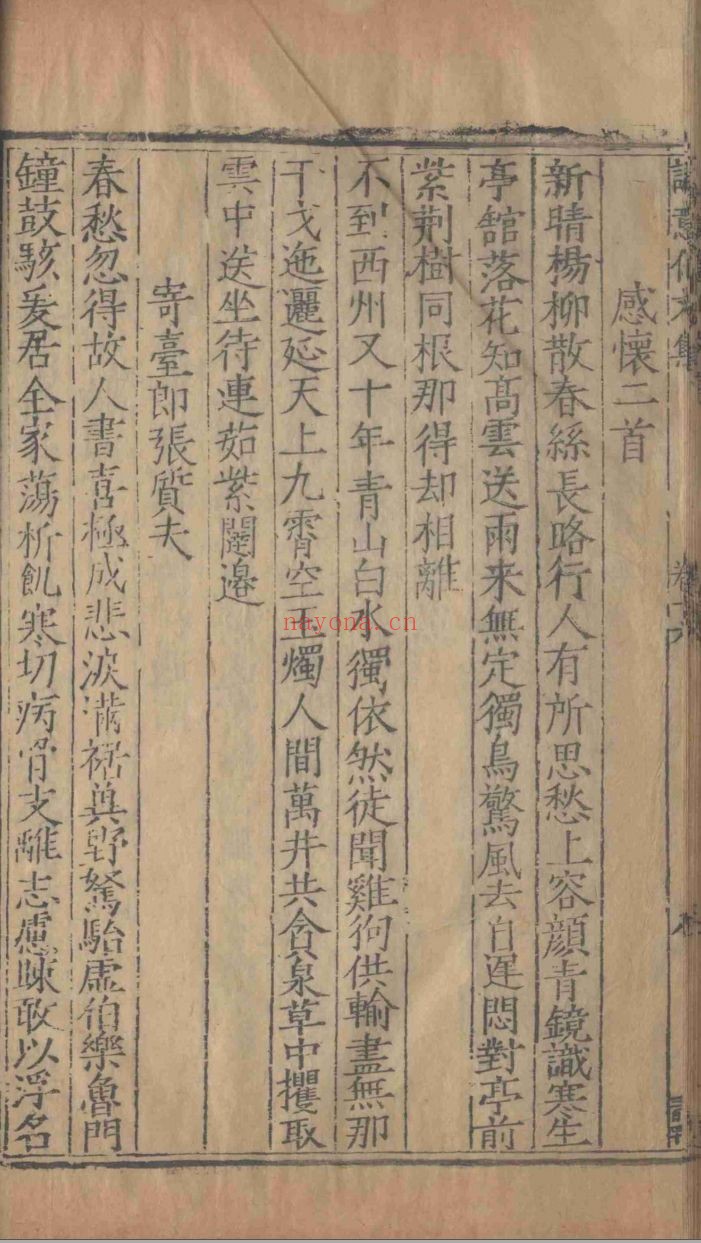 感懷二首
新晴楊柳散春絲長路行人有所思愁上容顏青鏡識寒生
亭舘落花知髙雲送雨来無定獨鳥驚風去自遲悶對亭前
紫荆樹同根那得却相離
不到西州又十年青山白水獨依然徒聞雞狗供輸盡無那
干戈迤邐延天上九霄空玉燭人間萬井共貪泉草中攫取
雲中送坐待連茹紫闥邉
寄臺郎張質夫
春愁忽得故人書喜極成悲淚滿裾兾野駑駘虚伯樂魯門
鐘鼓駭爰居全家蕩析飢寒切病骨支離志慮踈敢以浮名
nayona.cn